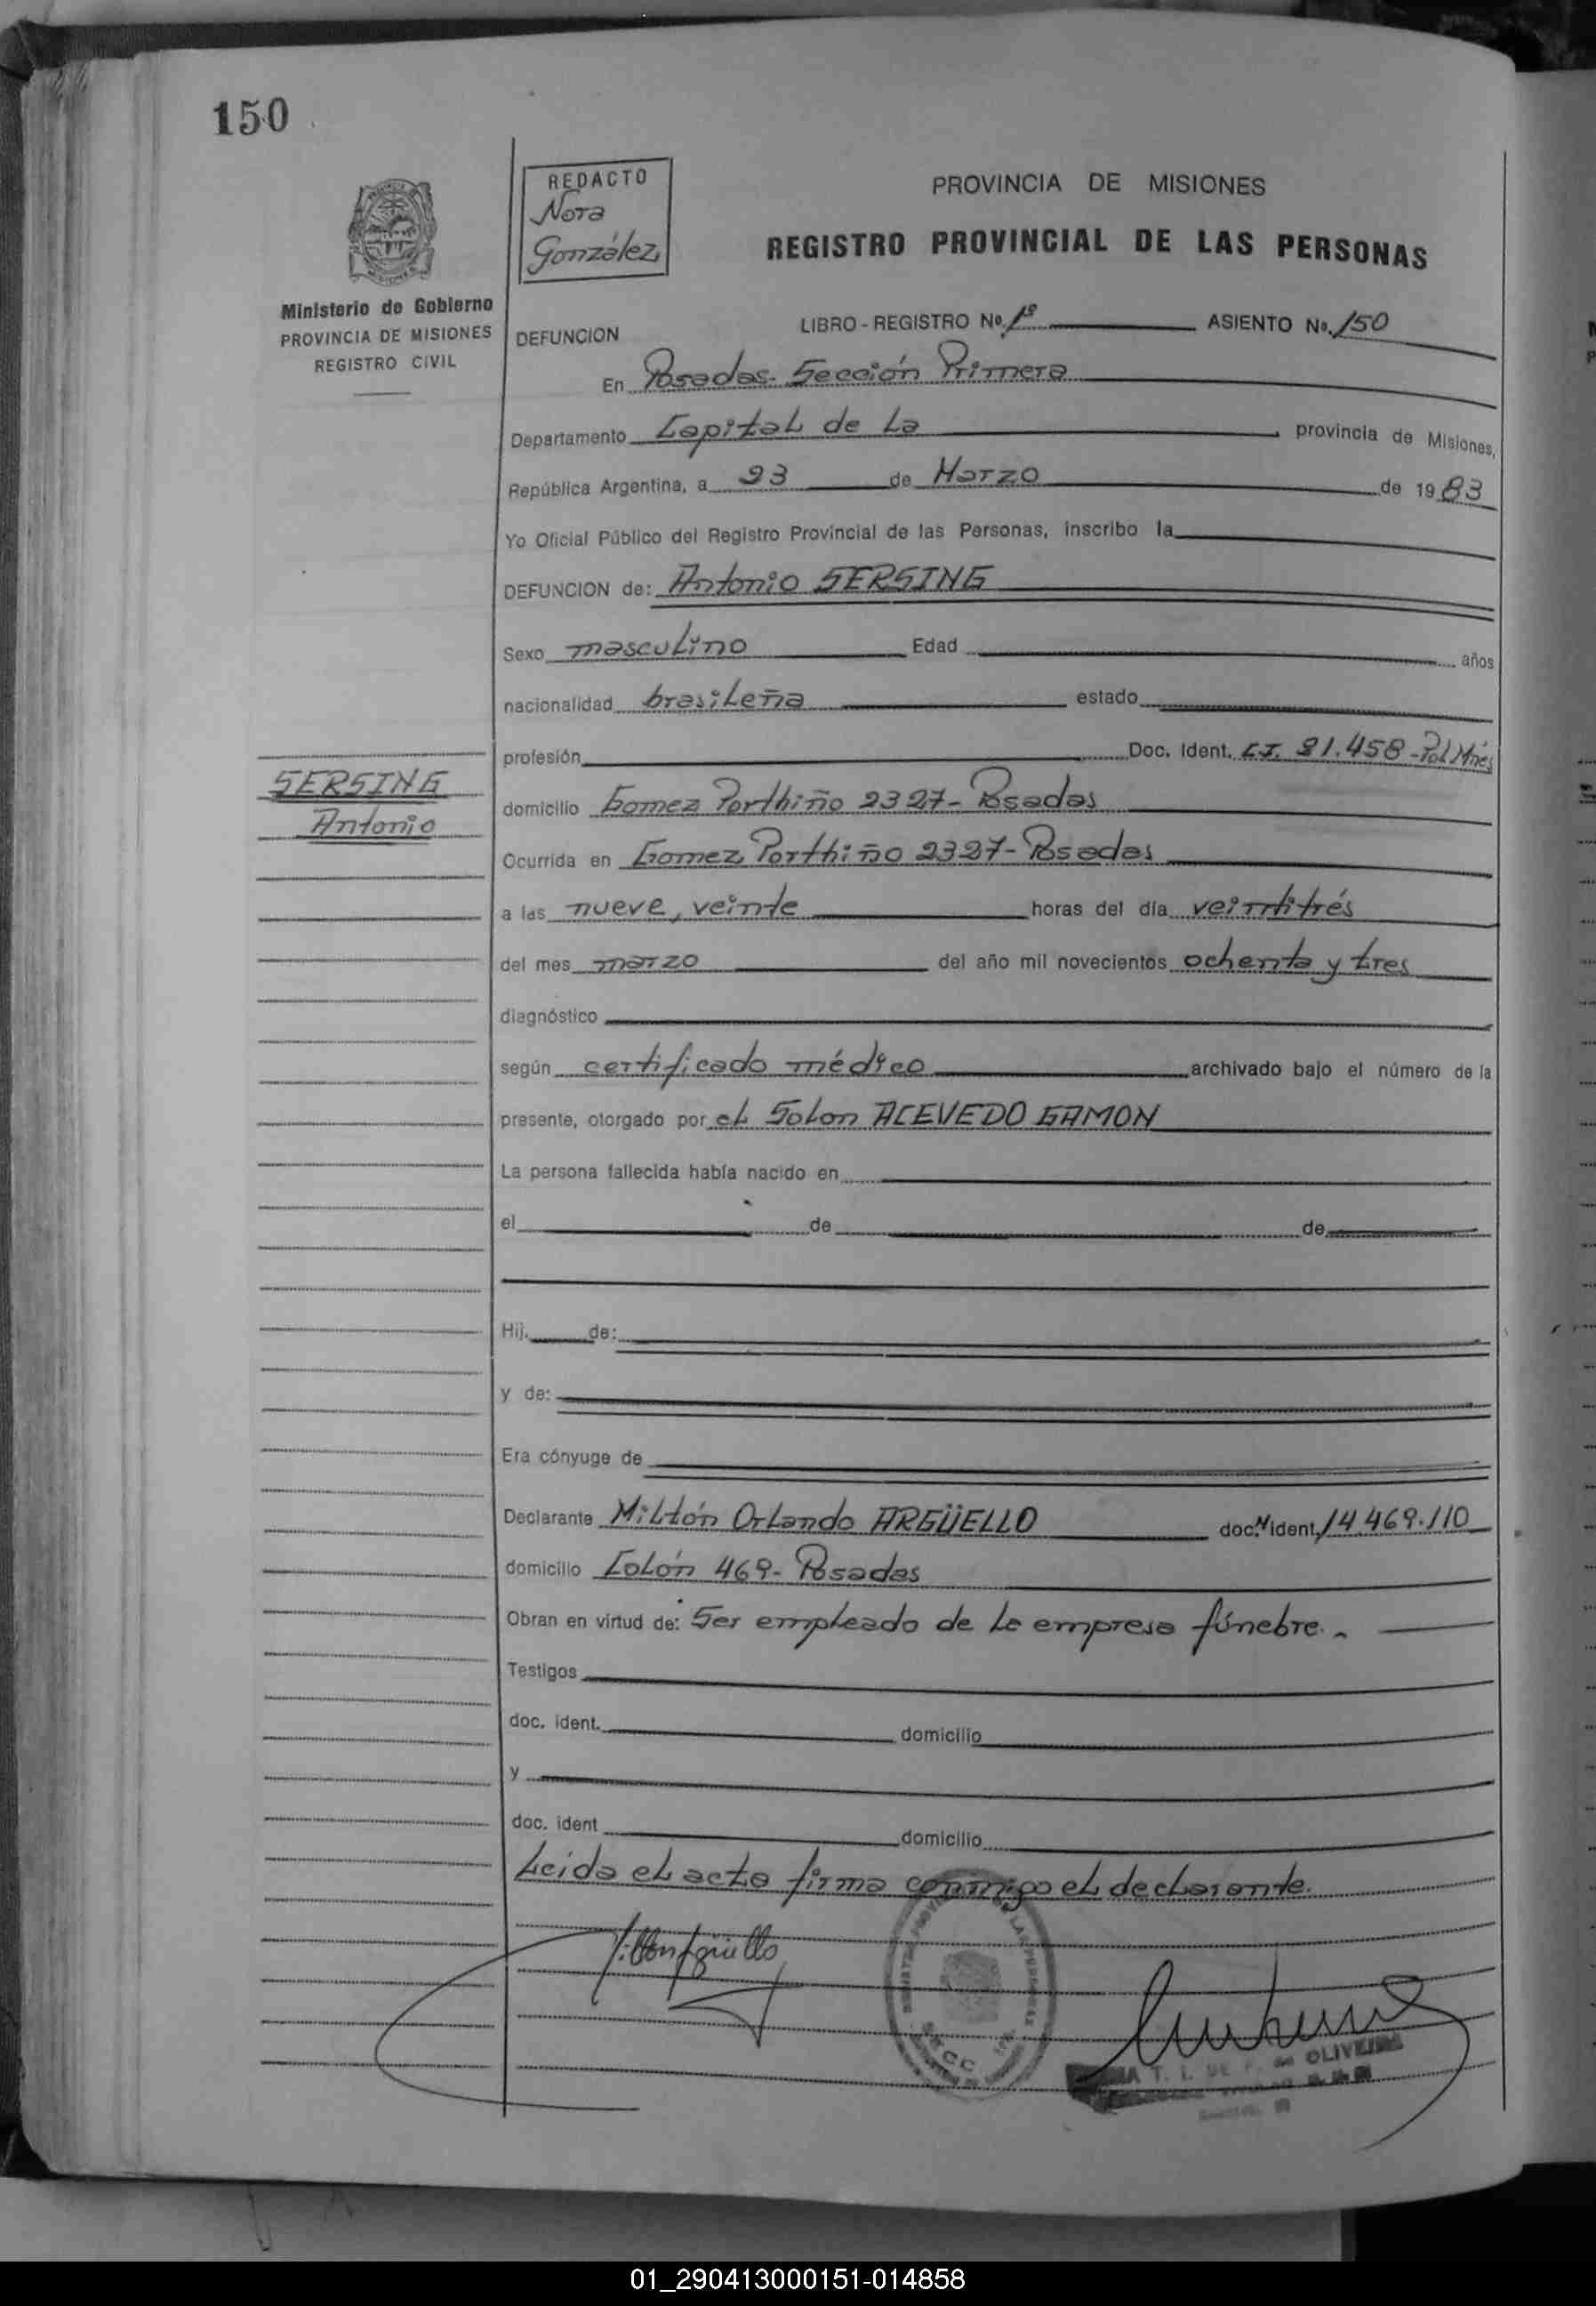 150
REDACTO
Nora
González
PROVINCIA DE MISIONES
REGISTRO PROVINCIAL DE LAS PERSONAS
Ministerio de Gobierno
PROVINCIA DE MISIONES
REGISTRO CIVIL
DEFUNCION LIBRO - REGISTRO No. 1º ASIENTO No. 150
En Posadas. Sección Primera
Departamento Capital de La provincia de Misiones,
República Argentina, a 23 de Marzo de 1983
Yo Oficial Público del Registro Provincial de las Personas, inscribo la
DEFUNCION de: Antonio SERSING
Sexo masculino Edad años
nacionalidad brasileña estado
profesión Doc. Ident. C.I. 21.458-Pol Mnes
SERSING
Antonio
domicilio Gomez Porthiño 2327- Posadas
Ocurrida en Gomez Porthiño 2327- Posadas
a las nueve, veinte horas del día veintitrés
del mes marzo del año mil novecientos ochenta y tres
diagnóstico
según certificado médico archivado bajo el número de la
presente, otorgado por el Solon ACEVEDO GAMON
La persona fallecida había nacido en
el de de
Hij. de:
y de:
Era cónyuge de
Declarante Miltón Orlando ARGÜELLO doc. N ident. 14.469.110
domicilio Colón 469- Posadas
Obran en virtud de: Ser empleado de la empresa fúnebre.
Testigos
doc. ident. domicilio
y
doc. ident domicilio
Leida el acta firma conmigo el declarante.
T. I. DE de OLIVEIRA
01_290413000151-014858